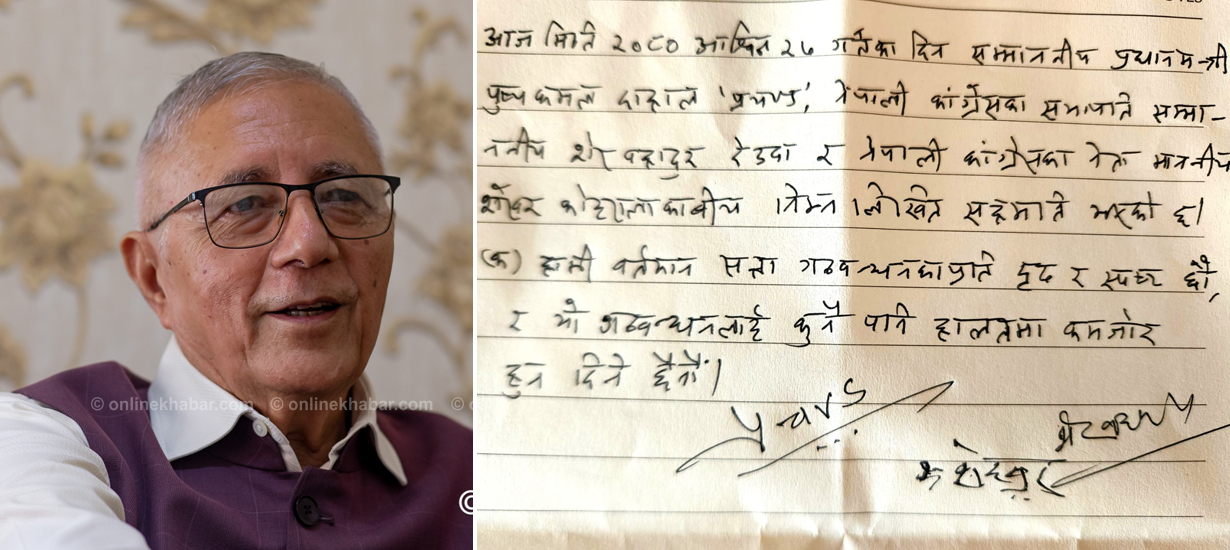 आज मिति २०८० आश्विन २६ गतेका दिन सम्माननीय प्रधानमन्त्री
पुष्पकमल दाहाल 'प्रचण्ड', नेपाली कांग्रेसका सभापति सम्मा-
ननीय शेर बहादुर देउवा र नेपाली कांग्रेसका नेता माननीय
शेखर कोइरालाका बीच निम्न लिखित सहमति भएको छ।
(क) हामी वर्तमान सत्ता गठबन्धनका प्रति दृढ र स्पष्ट छौं,
र यो गठबन्धनलाई कुनै पनि हालतमा कमजोर
हुन दिने छैनौं।
© onlinekhabar.com © onlinekhabar.com ©
©